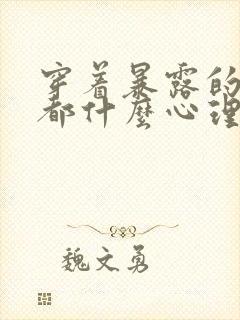 穿着暴露的
都什麼心理
魏文勇